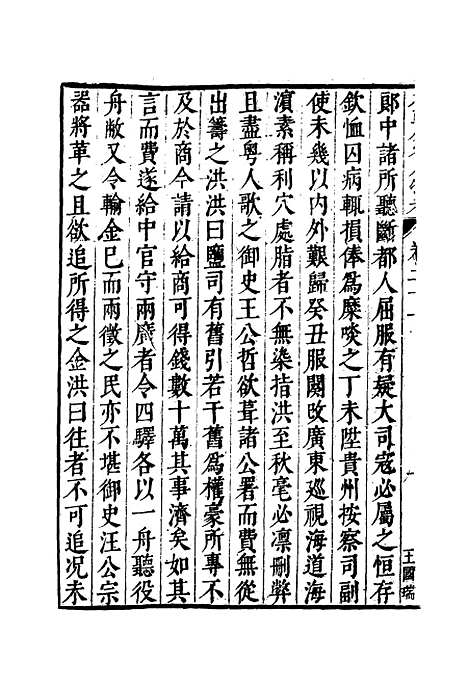 郎中諸所聽斷都人屈服有疑大司寇必屬之恒存
欽恤囚病輒損俸爲糜啖之丁未陞貴州按察司副
使未幾以内外艱歸癸丑服闋改廣東巡視海道海
濵素稱利穴處脂者不無染指洪至秋毫必凛刪弊
且盡粤人歌之御史王公哲欲葺諸公署而費無從
出籌之洪洪曰鹽司有舊引若干舊爲權豪所專不
及於商今請以給商可得錢數十萬其事濟矣如其
言而費遂給中官守兩廣者令四驛各以一舟聽役
舟敝又令輸金巳而兩徵之民亦不堪御史汪公宗
器將革之且欲追所得之金洪曰往者不可追况未
王國瑞